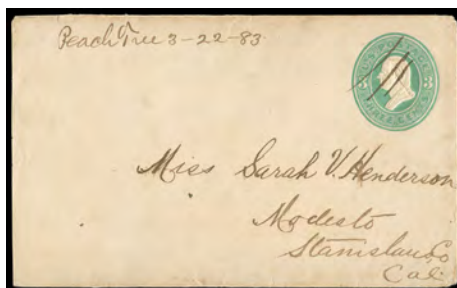 Peach Tree 3-22-83
U.S. POSTAGE
3 3
THREE CENTS
Miss Sarah V. Henderson
Modesto
Stanislaus Co
Cal